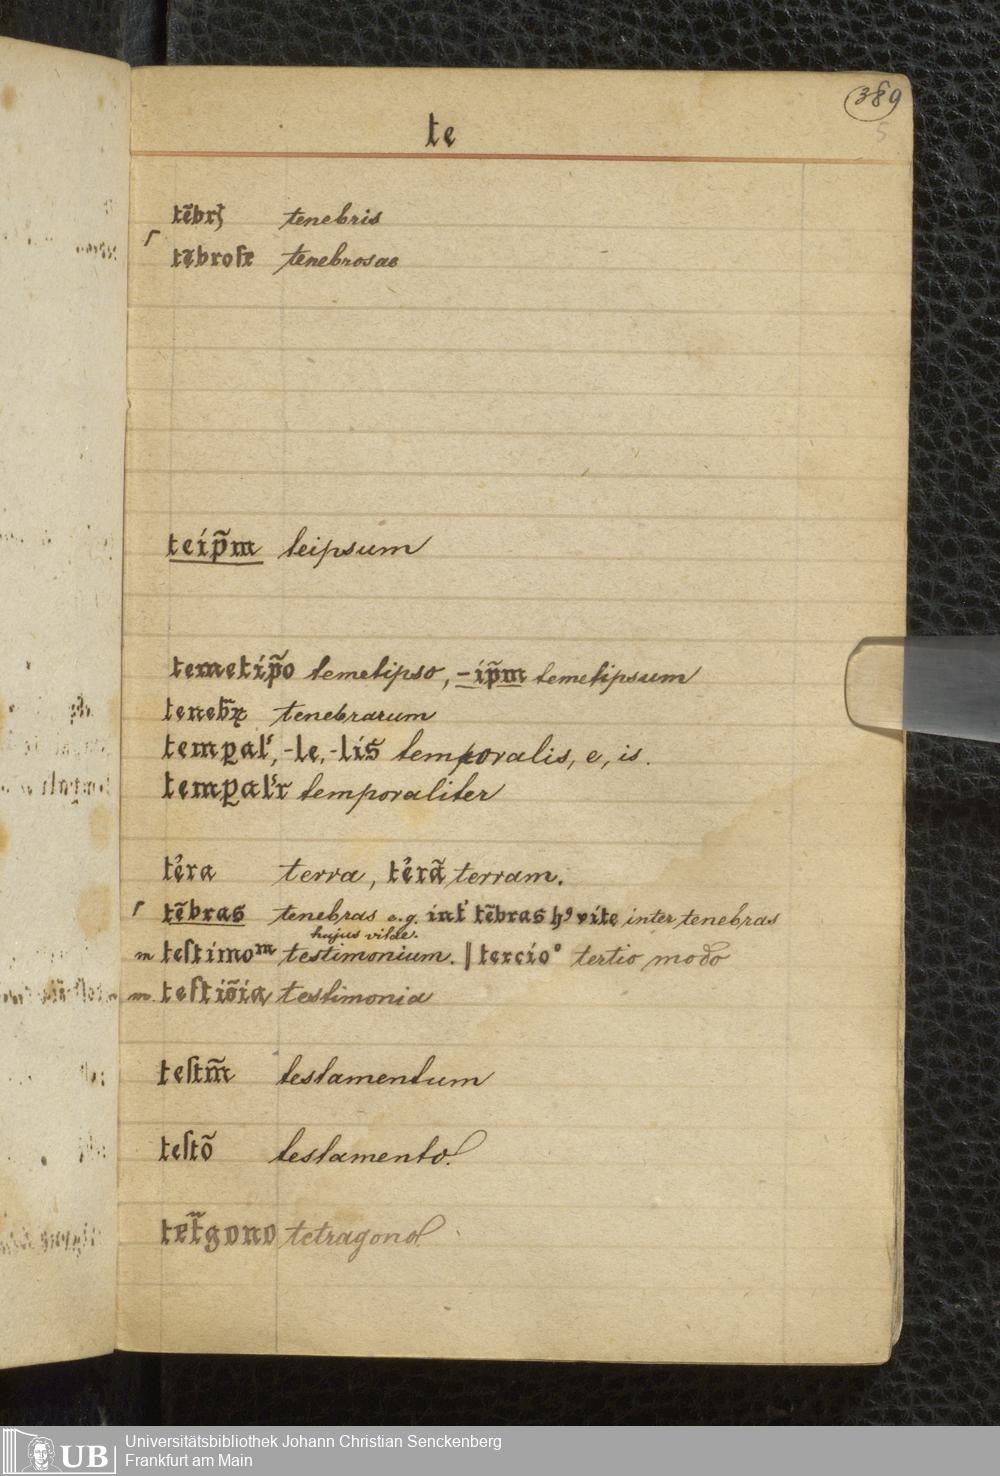 389
5
te
tẽbrꝫ tenebris
┌ tẽbroſe tenebrosae
teip̃m teipsum
temetip̃o temetipso, -ip̃m temetipsum
teneb̃ꝝ tenebrarum
temꝑal', -le, -lis̃ temporalis, e, is.
temꝑal'r temporaliter
te᾽ra terra, te᾽rã terram.
┌ tẽbras tenebras e.g. int' tẽbras hꝰ vite inter tenebras
hujus vitae.
m teſtimoᵐ testimonium. | tercio° tertio modo
m. teſtiõia testimonia
teſtm̃ testamentum
teſtõ testamento.
tet̃gono tetragono.
UB
Universitätsbibliothek Johann Christian Senckenberg
Frankfurt am Main